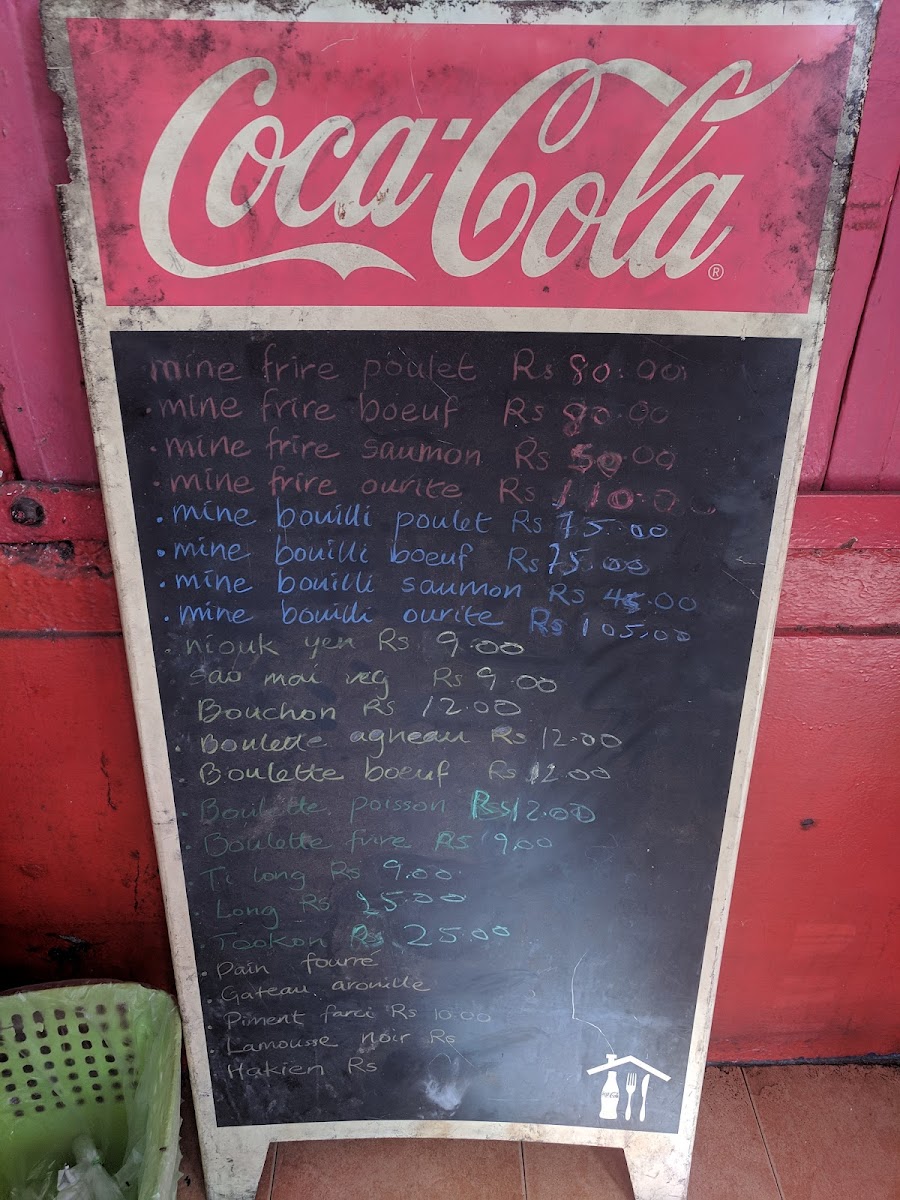 Coca-Cola ®
mine frire poulet Rs 80.00
.mine frire boeuf Rs 80.00
.mine frire saumon Rs 50.00
.mine frire ourite Rs 110.00
.mine bouilli poulet Rs 75.00
.mine bouilli boeuf Rs 75.00
.mine bouilli saumon Rs 45.00
.mine bouilli ourite Rs 105.00
.niouk yen Rs 9.00
.sao mai veg Rs 9.00
.Bouchon Rs 12.00
.Boulette agneau Rs 12.00
.Boulette boeuf Rs 12.00
.Boulette poisson Rs 12.00
.Boulette frire Rs 9.00
.Ti long Rs 9.00
.Long Rs 25.00
.Taokon Rs 25.00
.Pain fourré
.Gateau arouille
.Piment farci Rs 10.00
.Lamousse noir Rs
.Hakien Rs